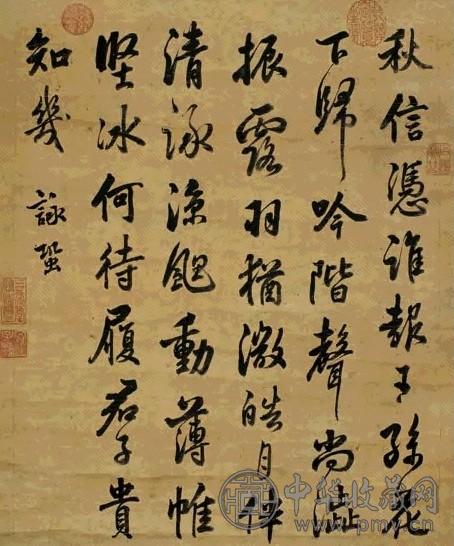 秋信憑誰報王孫
下歸吟階聲尚澁
振露羽猶微皓月裨
清詠涼颸動薄帷
堅冰何待履君子貴
知幾 詠蛩
中华收藏网
www.pmy.cn